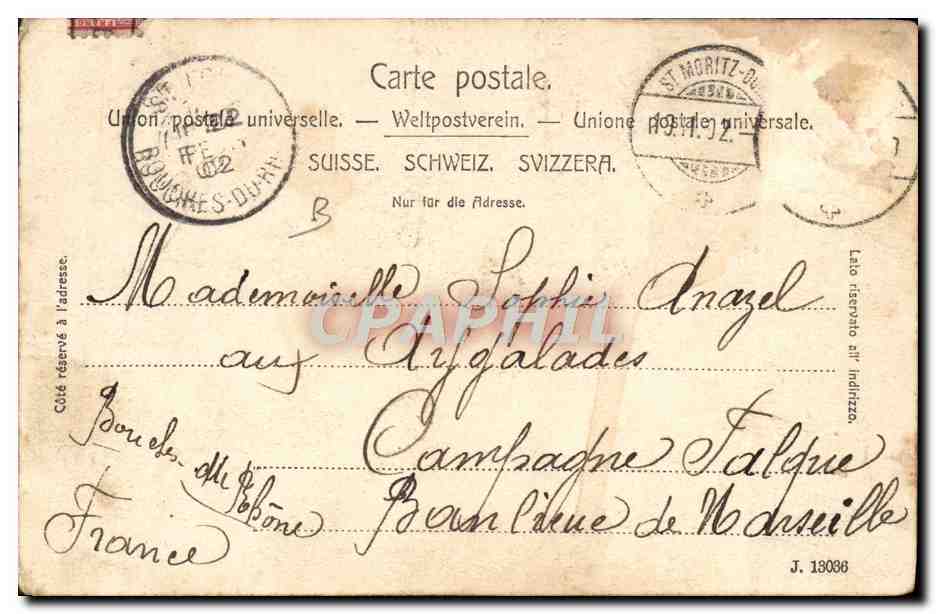 Carte postale.
Union postale universelle. — Weltpostverein. — Unione postale universale.
SUISSE. SCHWEIZ. SVIZZERA.
Nur für die Adresse.
ST MORITZ-DO
19.II.02.
FEVR
02
BOUCHES-DU-RH
B
Côté réservé à l'adresse.
Lato riservato all' indirizzo.
Mademoiselle Sophie Anazel
aux Aygalades
Campagne Falque
Banlieue de Marseille
Bouches-du-Rhône
France
CPAPHIL
J. 13036